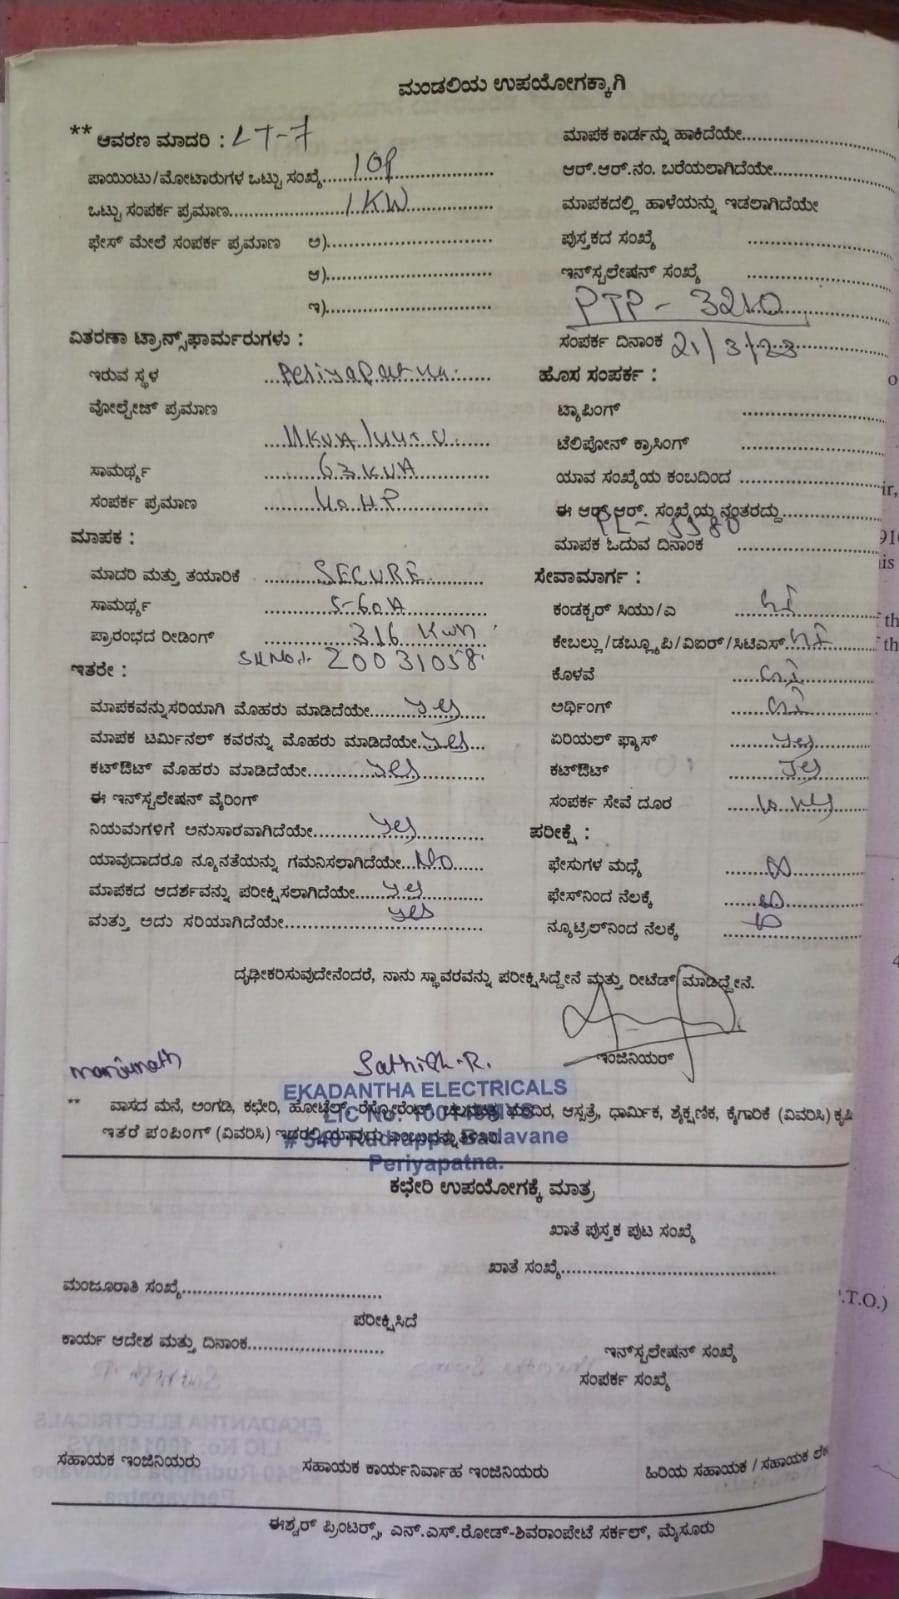 ಮಂಡಲಿಯ ಉಪಯೋಗಕ್ಕಾಗಿ
** ಆವರಣ ಮಾದರಿ : LT-7
ಪಾಯಿಂಟು/ಮೋಟಾರುಗಳ ಒಟ್ಟು ಸಂಖ್ಯೆ.....
ಒಟ್ಟು ಸಂಪರ್ಕ ಪ್ರಮಾಣ..... 1 KW
ಫೇಸ್ ಮೇಲೆ ಸಂಪರ್ಕ ಪ್ರಮಾಣ ಅ).....
ಆ).....
ಇ).....
ವಿತರಣಾ ಟ್ರಾನ್ಸ್‌ಫಾರ್ಮರುಗಳು :
ಇರುವ ಸ್ಥಳ
ವೋಲ್ಟೇಜ್ ಪ್ರಮಾಣ
ಸಾಮರ್ಥ್ಯ 63 KVA
ಸಂಪರ್ಕ ಪ್ರಮಾಣ
ಮಾಪಕ :
ಮಾದರಿ ಮತ್ತು ತಯಾರಿಕೆ SECURE
ಸಾಮರ್ಥ್ಯ 5-60A
ಪ್ರಾರಂಭದ ರೀಡಿಂಗ್ 316 KWH
20031058
ಇತರೇ :
ಮಾಪಕವನ್ನು ಸರಿಯಾಗಿ ಮೊಹರು ಮಾಡಿದೆಯೇ..... yes
ಮಾಪಕ ಟರ್ಮಿನಲ್ ಕವರನ್ನು ಮೊಹರು ಮಾಡಿದೆಯೇ..... yes
ಕಟ್‌ಔಟ್ ಮೊಹರು ಮಾಡಿದೆಯೇ..... yes
ಈ ಇನ್‌ಸ್ಟಲೇಷನ್ ವೈರಿಂಗ್
ನಿಯಮಗಳಿಗೆ ಅನುಸಾರವಾಗಿದೆಯೇ..... yes
ಯಾವುದಾದರೂ ನ್ಯೂನತೆಯನ್ನು ಗಮನಿಸಲಾಗಿದೆಯೇ... No
ಮಾಪಕದ ಆದರ್ಶವನ್ನು ಪರೀಕ್ಷಿಸಲಾಗಿದೆಯೇ..... yes
ಮತ್ತು ಅದು ಸರಿಯಾಗಿದೆಯೇ..... yes
ಮಾಪಕ ಕಾರ್ಡನ್ನು ಹಾಕಿದೆಯೇ.....
ಆರ್.ಆರ್.ನಂ. ಬರೆಯಲಾಗಿದೆಯೇ.....
ಮಾಪಕದಲ್ಲಿ ಹಾಳೆಯನ್ನು ಇಡಲಾಗಿದೆಯೇ
ಪುಸ್ತಕದ ಸಂಖ್ಯೆ .....
ಇನ್‌ಸ್ಟಲೇಷನ್ ಸಂಖ್ಯೆ .....
PTP - 3210
ಸಂಪರ್ಕ ದಿನಾಂಕ 21/3/23
ಹೊಸ ಸಂಪರ್ಕ :
ಟ್ಯಾಪಿಂಗ್ .....
ಟೆಲಿಪೋನ್ ಕ್ರಾಸಿಂಗ್ .....
ಯಾವ ಸಂಖ್ಯೆಯ ಕಂಬದಿಂದ .....
ಈ ಆರ್.ಆರ್. ಸಂಖ್ಯೆಯ್ಯ ನಂತರದ್ದು.....
ಮಾಪಕ ಓದುವ ದಿನಾಂಕ .....
ಸೇವಾಮಾರ್ಗ :
ಕಂಡಕ್ಟರ್ ಸಿಯು/ಎ
ಕೇಬಲ್ಲು/ಡಬ್ಲ್ಯೂಪಿ/ವಿಐರ್/ಸಿಟಿಎಸ್
ಕೊಳವೆ
ಅರ್ಥಿಂಗ್
ಏರಿಯಲ್ ಫ್ಯಾಸ್ yes
ಕಟ್‌ಔಟ್ yes
ಸಂಪರ್ಕ ಸೇವೆ ದೂರ
ಪರೀಕ್ಷೆ :
ಫೇಸುಗಳ ಮಧ್ಯೆ
ಫೇಸ್‌ನಿಂದ ನೆಲಕ್ಕೆ
ನ್ಯೂಟ್ರಲ್‌ನಿಂದ ನೆಲಕ್ಕೆ
ದೃಢೀಕರಿಸುವುದೇನೆಂದರೆ, ನಾನು ಸ್ಥಾವರವನ್ನು ಪರೀಕ್ಷಿಸಿದ್ದೇನೆ ಮತ್ತು ರೀಟೆಡ್ ಮಾಡಿದ್ದೇನೆ.
ಇಂಜಿನಿಯರ್
manjunath
EKADANTHA ELECTRICALS
** ವಾಸದ ಮನೆ, ಅಂಗಡಿ, ಕಛೇರಿ, ಹೋಟೆಲ್, ರೆಸ್ಟೋರೆಂಟ್, ಮಂದಿರ, ಆಸ್ಪತ್ರೆ, ಧಾರ್ಮಿಕ, ಶೈಕ್ಷಣಿಕ, ಕೈಗಾರಿಕೆ (ವಿವರಿಸಿ) ಕೃಷಿ
ಇತರೆ ಪಂಪಿಂಗ್ (ವಿವರಿಸಿ)
# 540 Rudrappa Badavane
Periyapatna.
ಕಛೇರಿ ಉಪಯೋಗಕ್ಕೆ ಮಾತ್ರ
ಖಾತೆ ಪುಸ್ತಕ ಪುಟ ಸಂಖ್ಯೆ
ಖಾತೆ ಸಂಖ್ಯೆ.....
ಮಂಜೂರಾತಿ ಸಂಖ್ಯೆ.....
ಪರೀಕ್ಷಿಸಿದೆ
ಕಾರ್ಯ ಆದೇಶ ಮತ್ತು ದಿನಾಂಕ.....
ಇನ್‌ಸ್ಟಲೇಷನ್ ಸಂಖ್ಯೆ
ಸಂಪರ್ಕ ಸಂಖ್ಯೆ
ಸಹಾಯಕ ಇಂಜಿನಿಯರು ಸಹಾಯಕ ಕಾರ್ಯನಿರ್ವಾಹ ಇಂಜಿನಿಯರು ಹಿರಿಯ ಸಹಾಯಕ / ಸಹಾಯಕ
ಈಶ್ವರ್ ಪ್ರಿಂಟರ್ಸ್, ಎನ್.ಎಸ್.ರೋಡ್-ಶಿವರಾಂಪೇಟೆ ಸರ್ಕಲ್, ಮೈಸೂರು